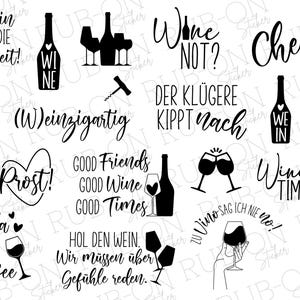 in
DIE
eit!
WI
NE
Wine
NOT?
Che
(W)einzigartig
DER KLÜGERE
KIPPT nach
WE
IN
Prost!
GOOD Friends
GOOD Wine
GOOD Times
Wine
TIM
a
ee
HOL DEN WEIN.
Wir müssen über
Gefühle reden.
ZU Vino SAG ICH NIE no!